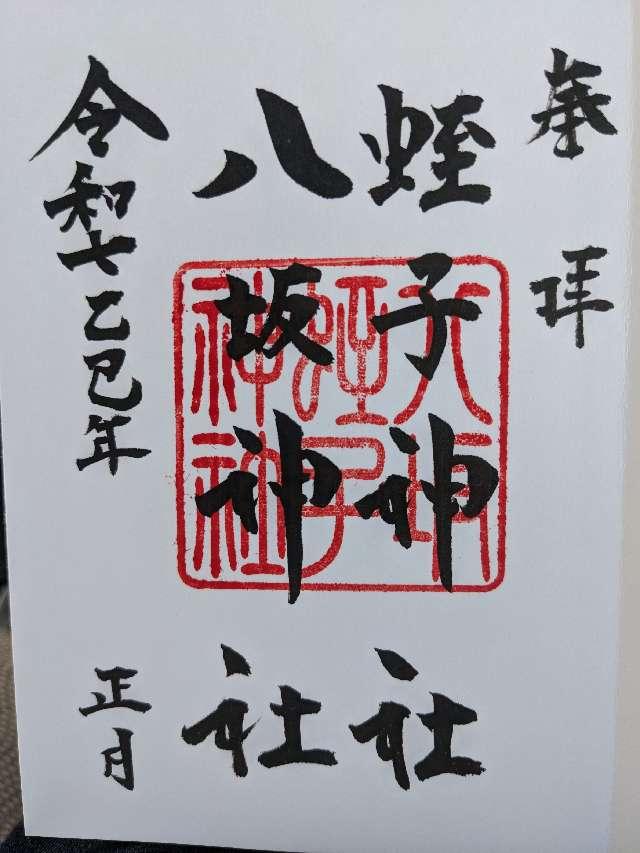 奉拝
蛭子神社
八坂神社
令和七乙巳年
正月
八坂
蛭子
神社